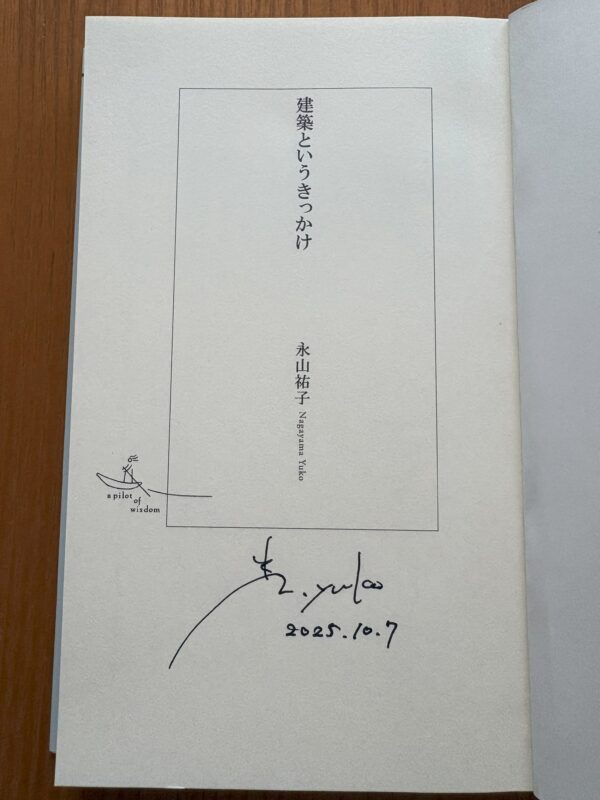 建築というきっかけ
永山祐子 Nagayama Yuko
a pilot
of
wisdom
yuko
2025.10.7